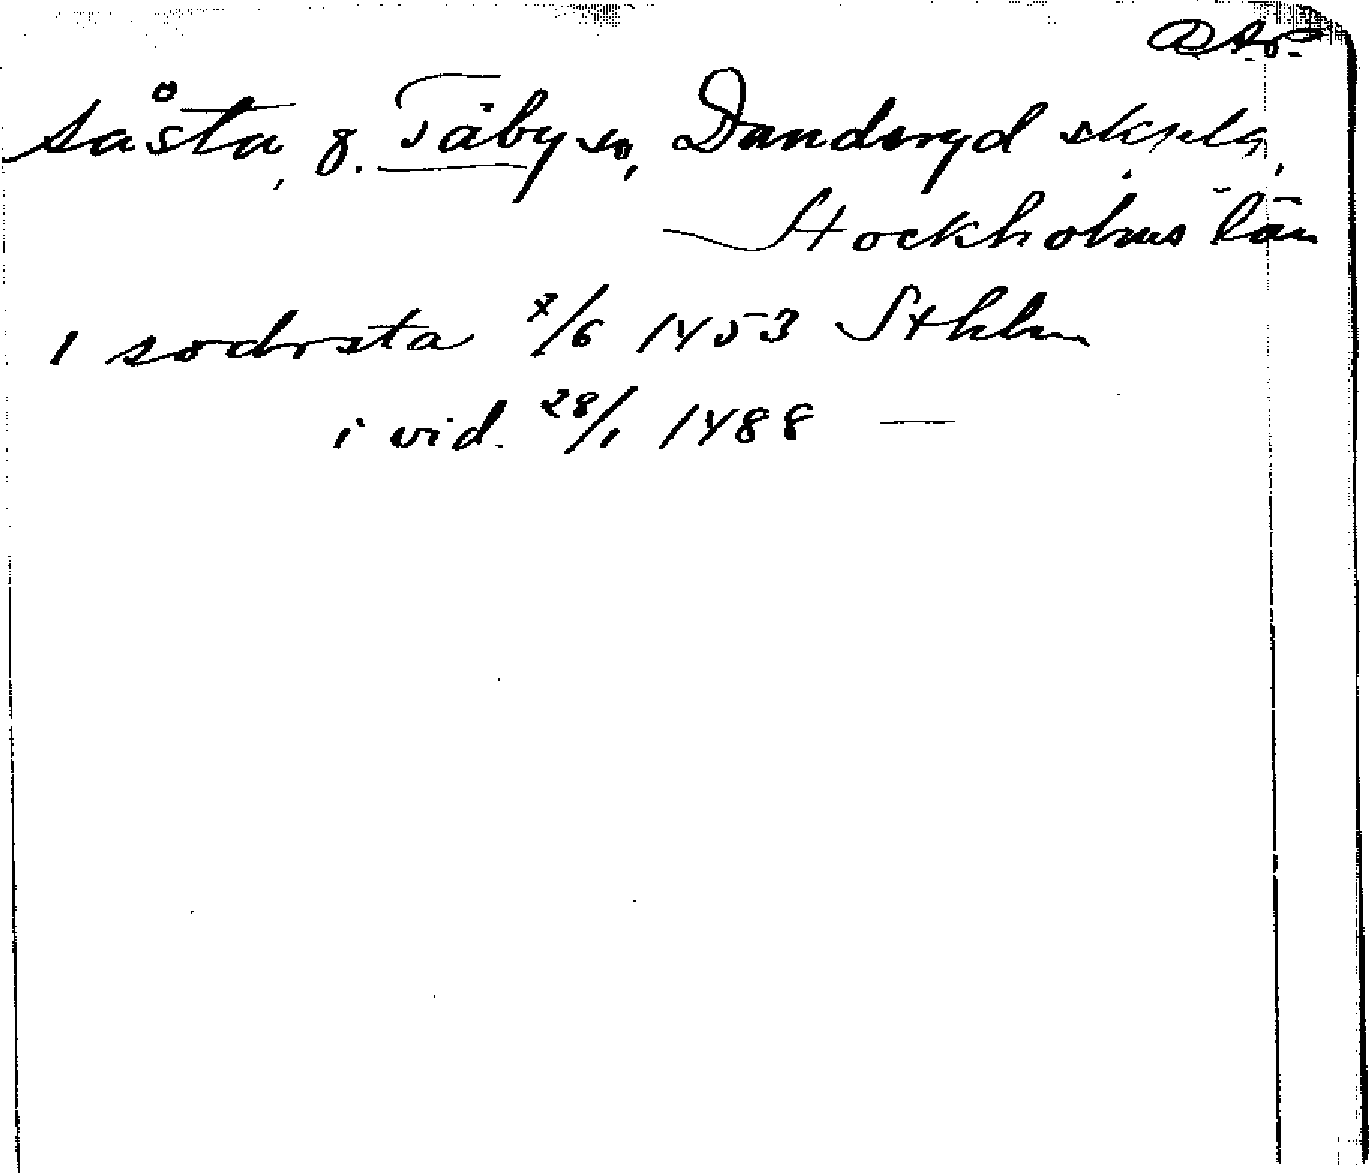 Såsta, g. Täby sn, Danderyd skpslg,
Stockholms län
i sodrsta 7/6 1453 Sthlm
i vid. 28/1 1488 —